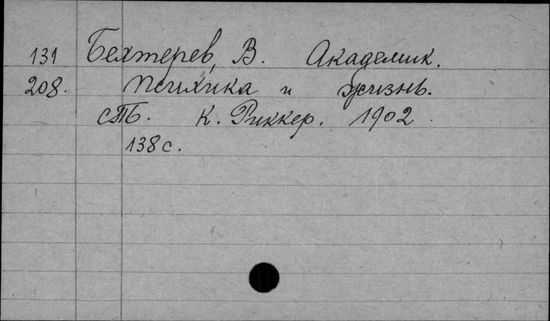 131 Бехтерев, В. Академик.
208. Психика и жизнь.
СПБ. К. Риккер. 1902.
138 с.